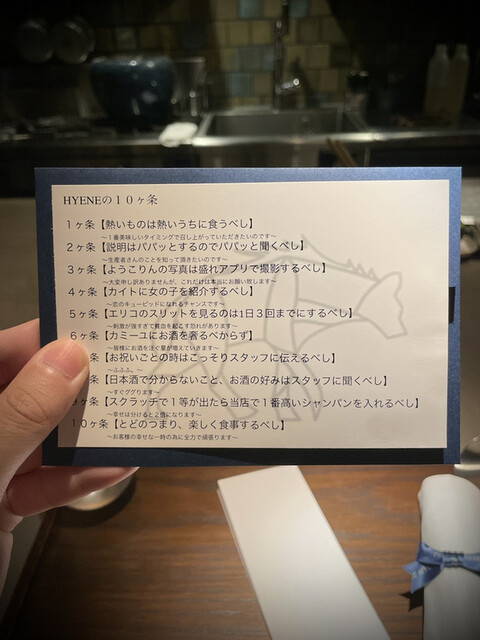 HYENEの10ヶ条
1ヶ条【熱いものは熱いうちに食うべし】
〜1番美味しいタイミングで召し上がっていただきたいのです〜
2ヶ条【説明はパパッとするのでパパッと聞くべし】
〜生産者さんのことを知って頂きたいのです〜
3ヶ条【ようこりんの写真は盛れアプリで撮影するべし】
〜大変申し訳ありませんが、これだけは本当にお願い致します〜
4ヶ条【カイトに女の子を紹介するべし】
〜恋のキューピッドになれるチャンスです〜
5ヶ条【エリコのスリットを見るのは1日3回までにするべし】
〜刺激が強すぎて貧血を起こす恐れがあります〜
6ヶ条【カミーユにお酒を奢るべからず】
〜皆様にお酒を注ぐ量が増えていきます〜
条【お祝いごとの時はこっそりスタッフに伝えるべし】
〜ふふふ。〜
条【日本酒で分からないこと、お酒の好みはスタッフに聞くべし】
〜すぐググります〜
ヶ条【スクラッチで1等が出たら当店で1番高いシャンパンを入れるべし】
〜幸せは分けると2倍になります〜
10ヶ条【とどのつまり、楽しく食事するべし】
〜お客様の幸せな一時の為に全力で頑張ります〜